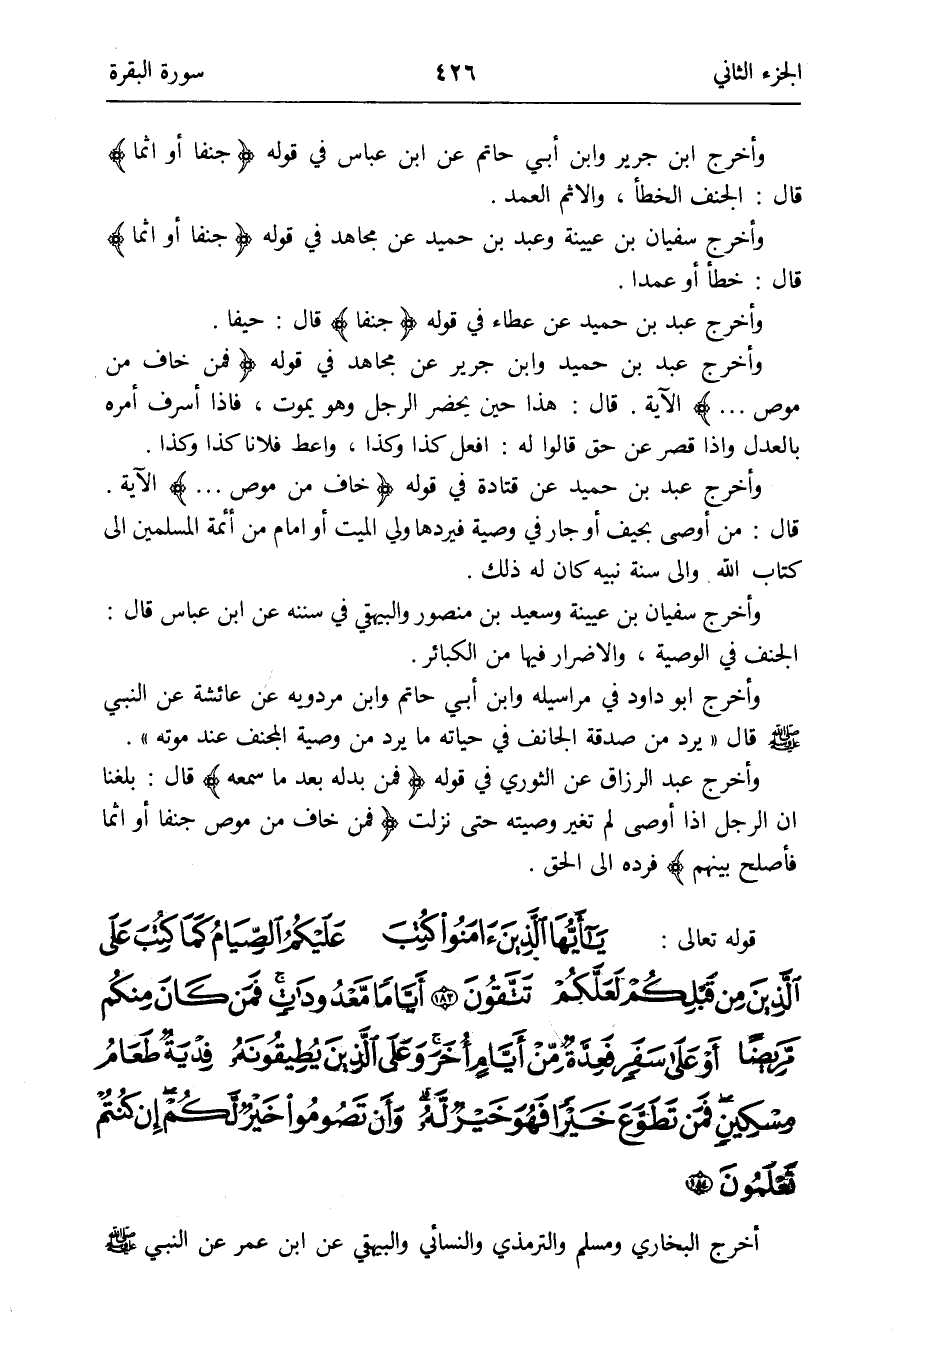 الجزء الثاني ٤٢٦ سورة البقرة
وأخرج ابن جرير وابن أبي حاتم عن ابن عباس في قوله ﴿ جنفا أو اثما ﴾
قال : الجنف الخطأ ، والاثم العمد .
وأخرج سفيان بن عيينة وعبد بن حميد عن مجاهد في قوله ﴿ جنفا أو اثما ﴾
قال : خطأ أو عمدا .
وأخرج عبد بن حميد عن عطاء في قوله ﴿ جنفا ﴾ قال : حيفا .
وأخرج عبد بن حميد وابن جرير عن مجاهد في قوله ﴿ فمن خاف من
موص ... ﴾ الآية . قال : هذا حين يحضر الرجل وهو يموت ، فاذا أسرف أمره
بالعدل واذا قصر عن حق قالوا له : افعل كذا وكذا ، واعط فلانا كذا وكذا .
وأخرج عبد بن حميد عن قتادة في قوله ﴿ خاف من موص ... ﴾ الآية .
قال : من أوصى بحيف أو جار في وصية فيردها ولي الميت أو امام من أئمة المسلمين الى
كتاب الله والى سنة نبيه كان له ذلك .
وأخرج سفيان بن عيينة وسعيد بن منصور والبيهقي في سننه عن ابن عباس قال :
الجنف في الوصية ، والاضرار فيها من الكبائر .
وأخرج ابو داود في مراسيله وابن أبي حاتم وابن مردويه عن عائشة عن النبي
ﷺ قال « يرد من صدقة الجانف في حياته ما يرد من وصية المجنف عند موته » .
وأخرج عبد الرزاق عن الثوري في قوله ﴿ فمن بدله بعد ما سمعه ﴾ قال : بلغنا
ان الرجل اذا أوصى لم تغير وصيته حتى نزلت ﴿ فمن خاف من موص جنفا أو اثما
فأصلح بينهم ﴾ فرده الى الحق .
قوله تعالى : يَٰٓأَيُّهَا ٱلَّذِينَ ءَامَنُوا۟ كُتِبَ عَلَيْكُمُ ٱلصِّيَامُ كَمَا كُتِبَ عَلَى
ٱلَّذِينَ مِن قَبْلِكُمْ لَعَلَّكُمْ تَتَّقُونَ ١٨٣ أَيَّامًا مَّعْدُودَٰتٍ ۚ فَمَن كَانَ مِنكُم
مَّرِيضًا أَوْ عَلَىٰ سَفَرٍ فَعِدَّةٌ مِّنْ أَيَّامٍ أُخَرَ ۚ وَعَلَى ٱلَّذِينَ يُطِيقُونَهُۥ فِدْيَةٌ طَعَامُ
مِسْكِينٍ ۖ فَمَن تَطَوَّعَ خَيْرًا فَهُوَ خَيْرٌ لَّهُۥ ۚ وَأَن تَصُومُوا۟ خَيْرٌ لَّكُمْ ۖ إِن كُنتُمْ
تَعْلَمُونَ ١٨٤
أخرج البخاري ومسلم والترمذي والنسأئي والبيهقي عن ابن عمر عن النبي ﷺ